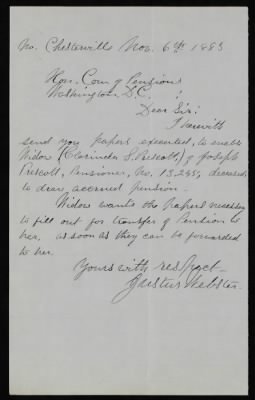 No. Chesterville Nov. 6th 1885
Hon. Com of Pensions
Washington, D.C. :
Dear Sir:
I herewith
send you papers executed, to enable
Widow (Clarinda S. Prescott,) of Joseph
Prescott, Pensioner, No. 13,245, deceased,
to draw accrued pension.
Widow wants the papers necessary
to fill out for transfer of Pension to
her, as soon as they can be forwarded
to her.
Yours with respect
Justus Webster.